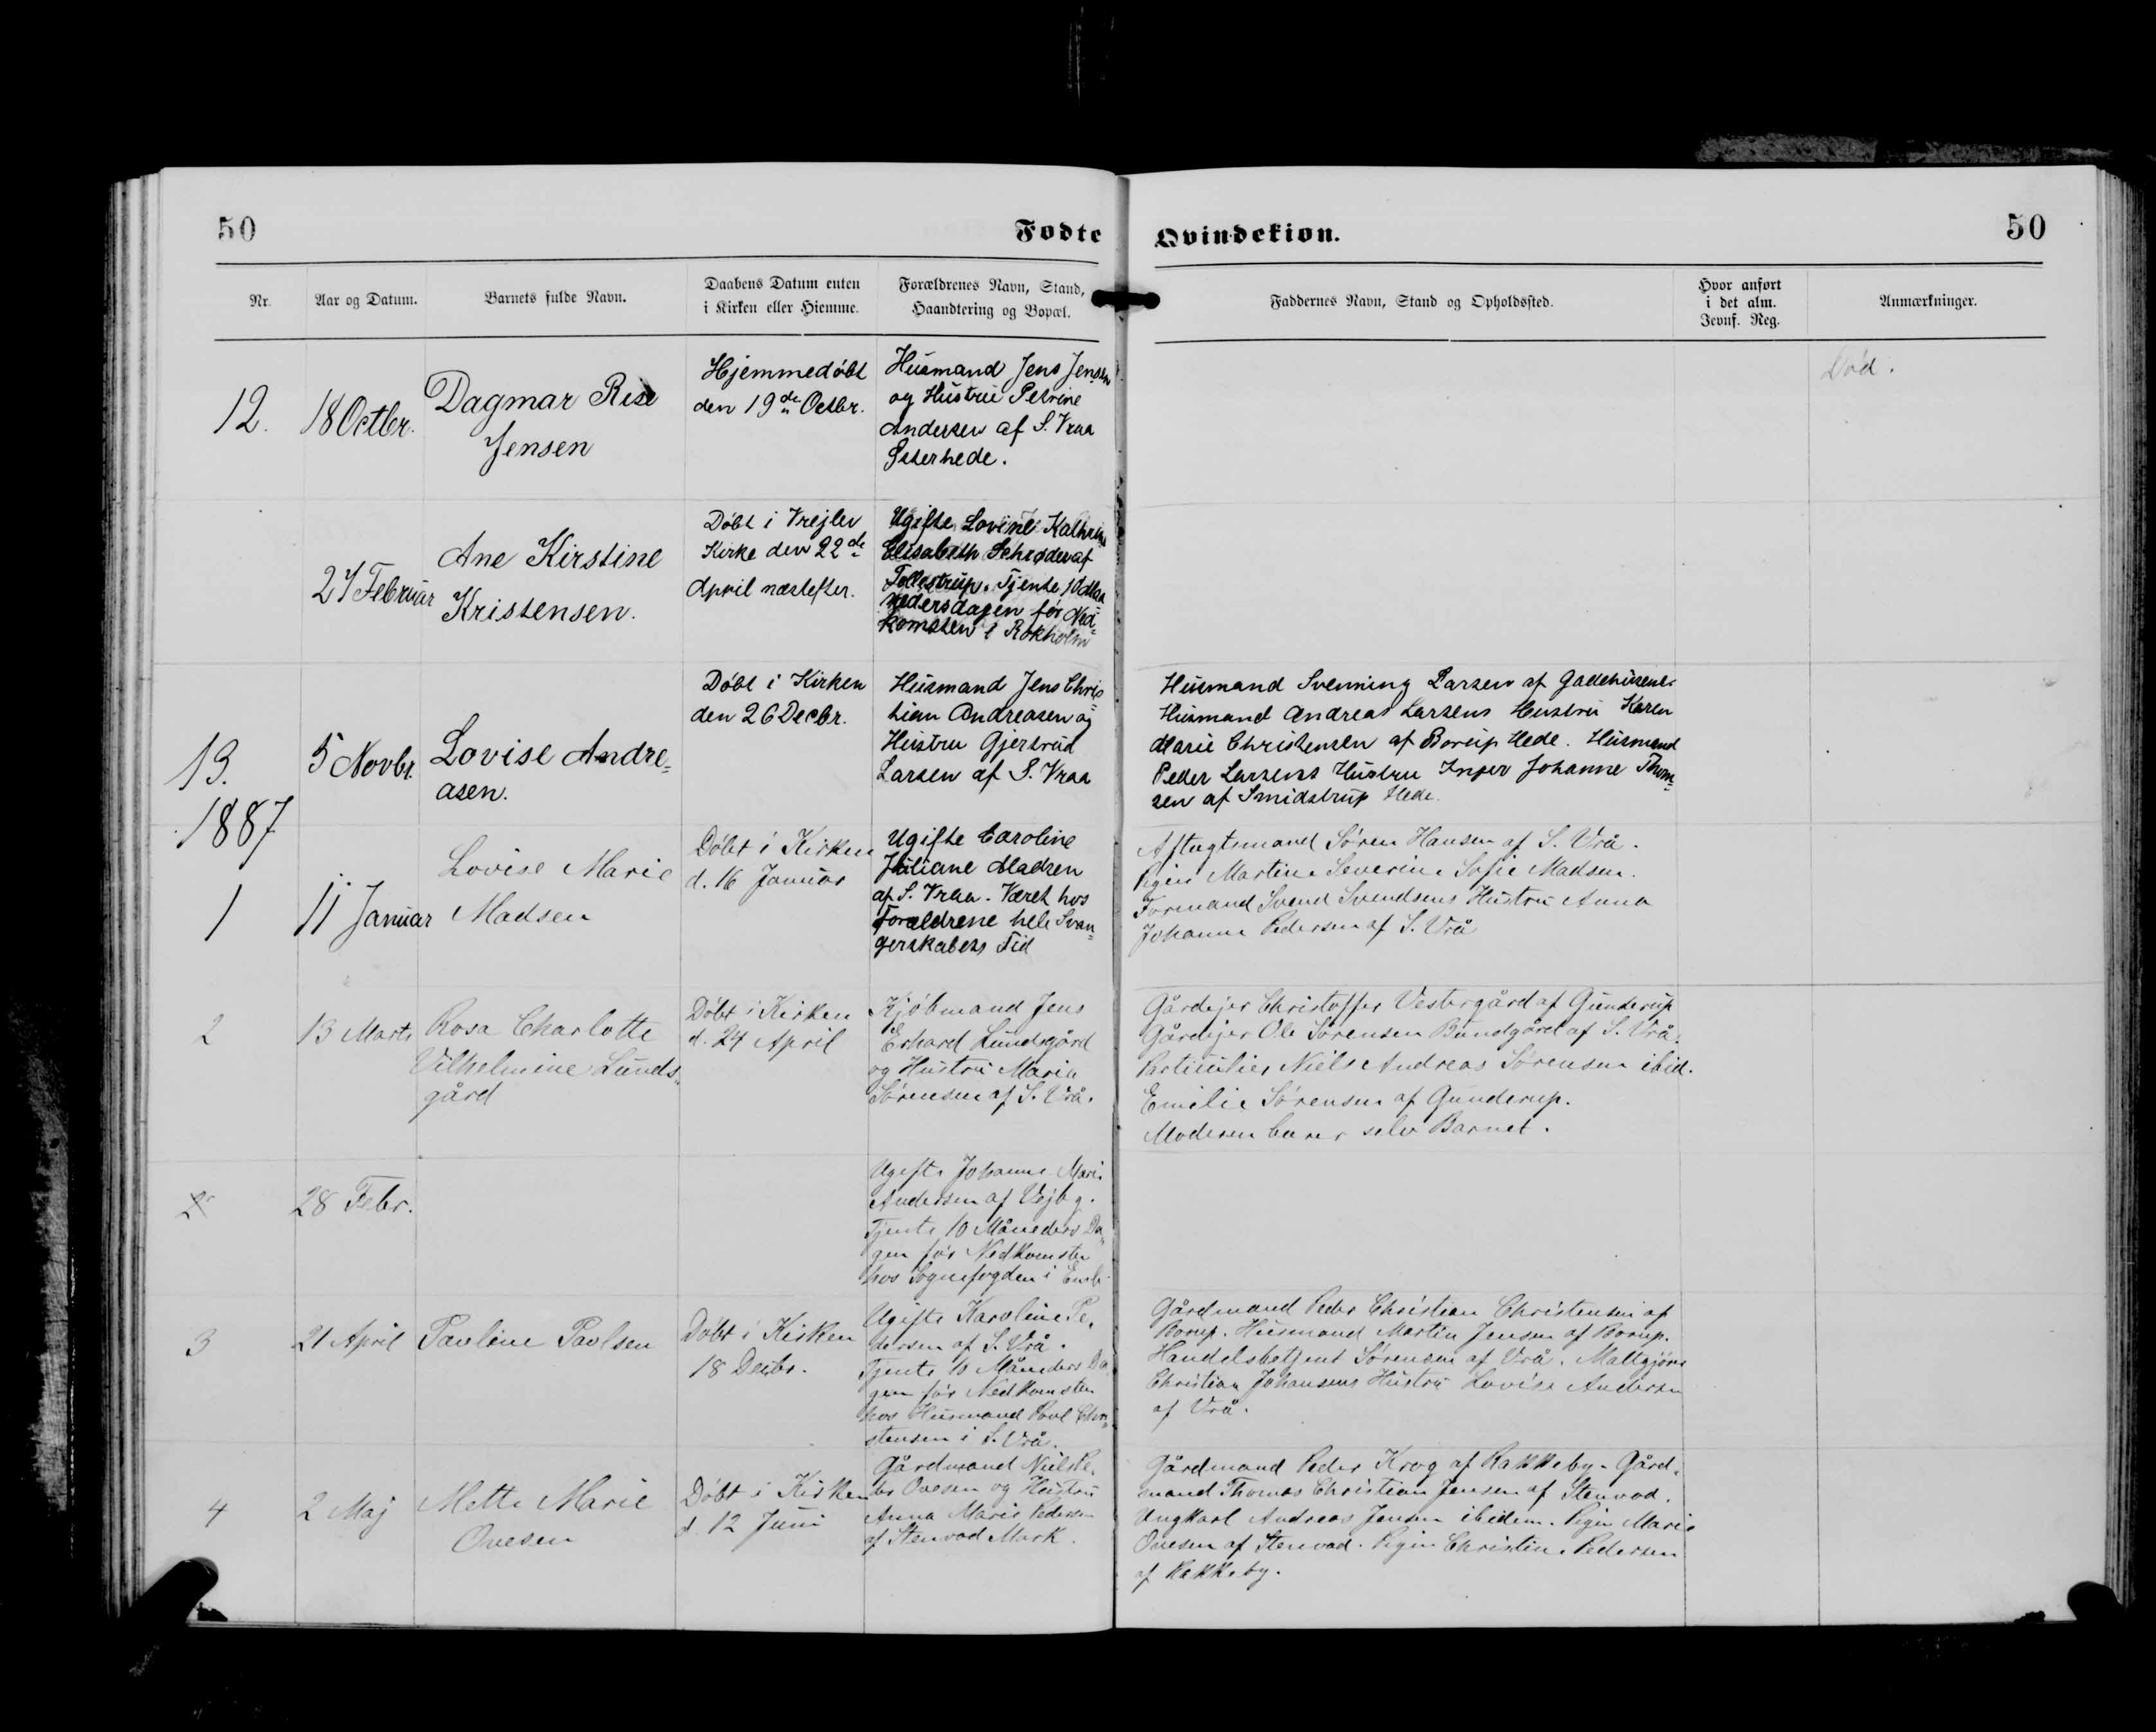 50
Fødte
Qvindekiøn.
50
Nr.
Aar og Datum.
Barnets fulde Navn.
Daabens Datum enten
i Kirken eller Hiemme.
Forældrenes Navn, Stand,
Haandtering og Bopæl.
Faddernes Navn, Stand og Opholdssted.
Hvor anført
i det alm.
Jevnf. Reg.
Anmærkninger.
12.
18 Octbr.
Dagmar
Jensen
Hjemmedøbt
den 19de Octbr.
Husmand Jens Jensen
og Hustru Petrine
Andersen af S. Vraa
Østerhede.
Død.
27 Februar
Ane Kirstine
Kristensen.
Døbt i Vrejlev
Kirke den 22de
April næstefter.
Ugifte Lovine Kathrine
Elisabeth Schrøder af
Tollestrup. Tjente 10 Maa
nedersdagen før Ned=
komsten i Rokholm
13.
5 Novbr.
Lovise Andre=
asen.
Døbt i Kirken
den 26 Decbr.
Husmand Jens Chris
tian Andreasen og
Hustru Gjertrud
Larsen af S. Vraa
Husmand Svenning Larsen af Gadehusene.
Husmand Andreas Larsens Hustru Karen
Marie Christensen af Borup Hede. Husmand
Peder Larsens Hustru Inger Johanne Thom=
sen af Smidstrup Hede.
1887
1
11 Januar
Lovise Marie
Madsen
Døbt i Kirken
d. 16 Januar
Ugifte Caroline
Juliane Madsen
af S. Vraa. Været hos
Forældrene hele Svan=
gerskabets Tid
Aftægtsmand Søren Hansen af S. Vrå.
Pigen Martine Severine Sofie Madsen.
Formand Svend Svendsens Hustru Anna
Johanne Pedersen af S. Vrå
2
13 Marts
Rosa Charlotte
Vilhelmine Lunds=
gård
Døbt i Kirken
d. 24 April
Kjøbmand Jens
Erhard Lundsgård
og Hustru Maria
Sørensen af S. Vrå.
Gårdejer Christoffer Vestergård af Gunderup
Gårdejer Ole Sørensen Bundgård af S. Vrå.
Particulier Niels Andreas Sørensen ibid.
Emilie Sørensen af Gunderup.
Moderen bærer selv Barnet.
2
28 Febr.
Ugifte Johanne Marie
Andersen af Vejby.
Tjente 10 Måneders Da=
gen før Nedkomsten
hos Sognefogden i
3
21 April
Pauline Paulsen
Døbt i Kirken
18 Decbr.
Ugifte Karoline Pe=
dersen af S. Vrå.
Tjente 10 Måneders Da
gen før Nedkomsten
hos Husmand Poul Chri=
stensen i S. Vrå.
Gårdmand Peder Christian Christensen af
Borup. Husmand Martin Jensen af Borup.
Handelsbetjent Sørensen af Vrå. Maltgjører
Christian Johansens Hustru Lovise Andersen
af Vrå.
4
2 Maj
Mette Marie
Ovesen
Døbt i Kirken
d. 12 Juni
Gårdmand Niels Pe=
ter Ovesen og Hustru
Anna Marie Pedersen
af Stenvad Mark.
Gårdmand Peder Krog af Rakkeby. Gård=
mand Thomas Christian Jensen af Stenvad.
Ungkarl Andreas Jensen ibidem. Pigen Marie
Ovesen af Stenvad. Pigen Christine Pedersen
af Rakkeby.